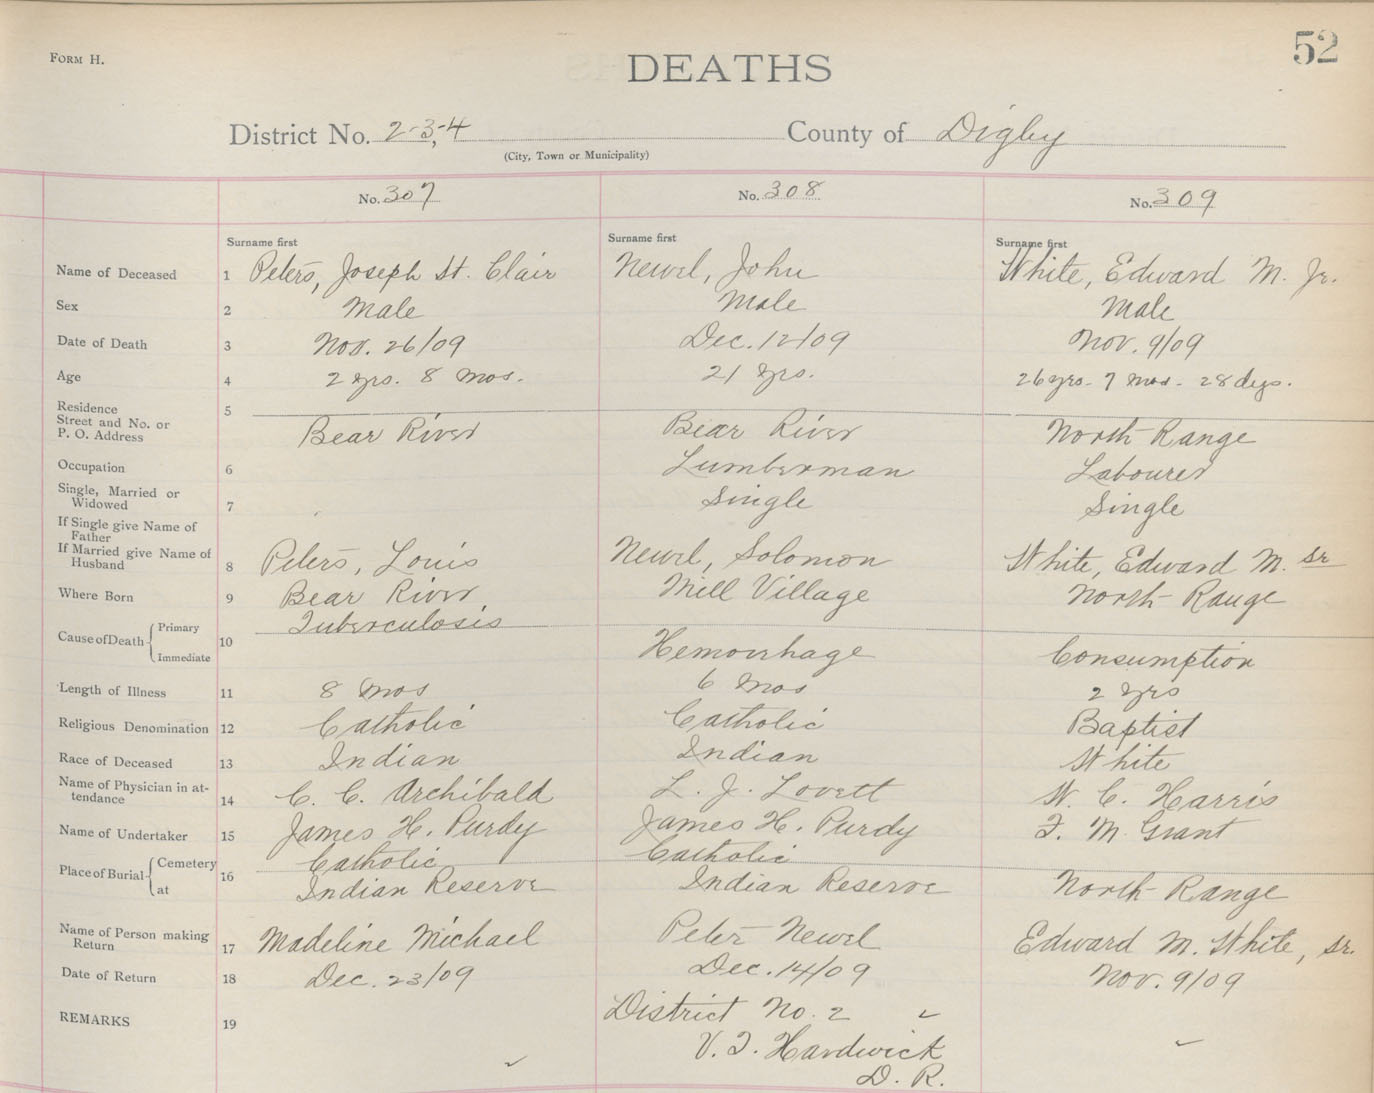 52
FORM H.
DEATHS
District No. 2-3,-4 County of Digby
(City, Town or Municipality)
No. 307 No. 308 No. 309
Surname first Surname first Surname first
Name of Deceased 1 Peters, Joseph St. Clair Newel, John White, Edward M. Jr.
Sex 2 Male Male Male
Date of Death 3 Nov. 26/09 Dec. 12/09 Nov. 9/09
Age 4 2 yrs. 8 mos. 21 yrs. 26 yrs - 7 mos - 28 dys.
Residence 5
Street and No. or
P. O. Address Bear River Bear River North Range
Occupation 6 Lumberman Labourer
Single, Married or
Widowed 7 Single Single
If Single give Name of
Father
If Married give Name of
Husband 8 Peters, Louis Newel, Solomon White, Edward M. Sr
Where Born 9 Bear River Mill Village North Range
Cause of Death Primary 10 Tuberculosis
Immediate Hemorrhage Consumption
Length of Illness 11 8 mos 6 mos 2 yrs
Religious Denomination 12 Catholic Catholic Baptist
Race of Deceased 13 Indian Indian White
Name of Physician in at-
tendance 14 C. C. Archibald L. J. Lovett W. C. Harris
Name of Undertaker 15 James H. Purdy James H. Purdy F. M. Grant
Place of Burial Cemetery 16 Catholic Catholic
at Indian Reserve Indian Reserve North Range
Name of Person making
Return 17 Madeline Michael Peter Newel Edward M. White, Sr.
Date of Return 18 Dec. 23/09 Dec. 14/09 Nov. 9/09
REMARKS 19 District No. 2
V. T. Hardwick
D. R.